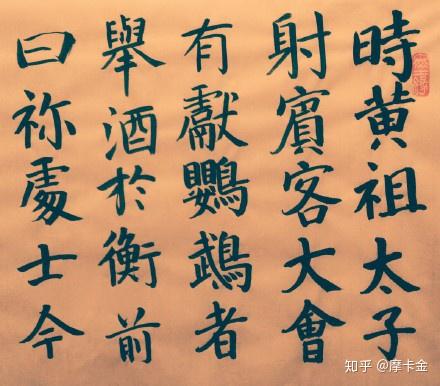 時黄祖太子
射賓客大會
有獻鸚鵡者
舉酒於衡前
曰祢處士今
知乎 @摩卡金